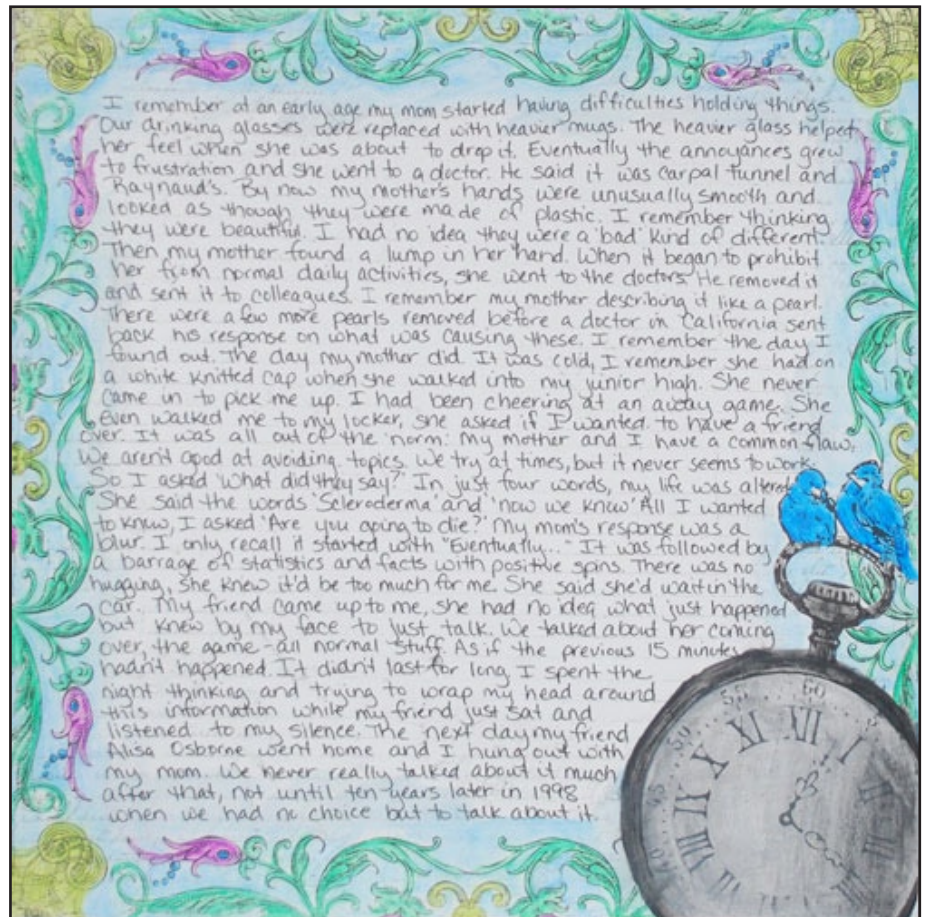 I remember at an early age my mom started having difficulties holding things.
Our drinking glasses were replaced with heavier mugs. The heavier glass helped
her feel when she was about to drop it. Eventually the annoyances grew
to frustration and she went to a doctor. He said it was carpal tunnel and
Raynaud's. By now my mother's hands were unusually smooth and
looked as though they were made of plastic. I remember thinking
they were beautiful. I had no idea they were a 'bad' kind of different.
Then my mother found a lump in her hand. When it began to prohibit
her from normal daily activities, she went to the doctors. He removed it
and sent it to colleagues. I remember my mother describing it like a pearl.
There were a few more pearls removed before a doctor in California sent
back his response on what was causing these. I remember the day I
found out. The day my mother did. It was cold, I remember she had on
a white knitted cap when she walked into my junior high. She never
came in to pick me up. I had been cheering at an away game. She
even walked me to my locker, she asked if I wanted to have a friend
over. It was all out of the 'norm.' My mother and I have a common flaw.
We aren't good at avoiding topics. We try at times, but it never seems to work.
So I asked 'what did they say?' In just four words, my life was altered.
She said the words 'Scleroderma' and 'now we know' All I wanted
to know, I asked 'Are you going to die?' My mom's response was a
blur. I only recall it started with "Eventually..." It was followed by
a barrage of statistics and facts with positive spins. There was no
hugging, she knew it'd be too much for me. She said she'd wait in the
car. My friend came up to me, she had no idea what just happened
but knew by my face to just talk. We talked about her coming
over, the game - all normal stuff. As if the previous 15 minutes
hadn't happened. It didn't last for long. I spent the
night thinking and trying to wrap my head around
this information while my friend just sat and
listened to my silence. The next day my friend
Alisa Osborne went home and I hung out with
my mom. We never really talked about it much
after that, not until ten years later in 1998
when we had no choice but to talk about it.
55 60 5
XI XII I
50 X
45 IX
VIII
VII VI